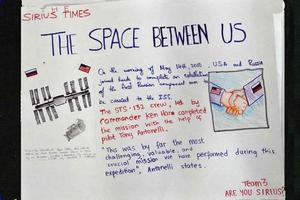 THE
SIRIUS TIMES
THE SPACE BETWEEN US
On the morning of May 14th, 2010, USA and Russia
joined hands to complete an installation
of the first Russian component ever
be created to the ISS.
The STS-132 crew, led by
commander Ken Ham completed
the mission with the help of
pilot Tony Antonelli.
"This was by far the most
challenging, valuable, and
crucial mission we have performed during this
expedition" Antonelli states.
Team 3
ARE YOU SIRIUS?